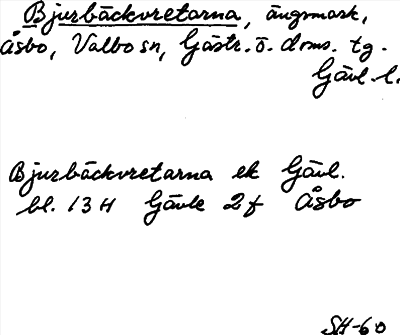 Bjurbäckvretarna, ängsmark,
Åsbo, Valbo sn, Gästr. ö. doms. tg.
Gävl. l.
Bjurbäckvretarna ek Gävl.
bl. 13 H Gävle 2 f Åsbo
SH-60